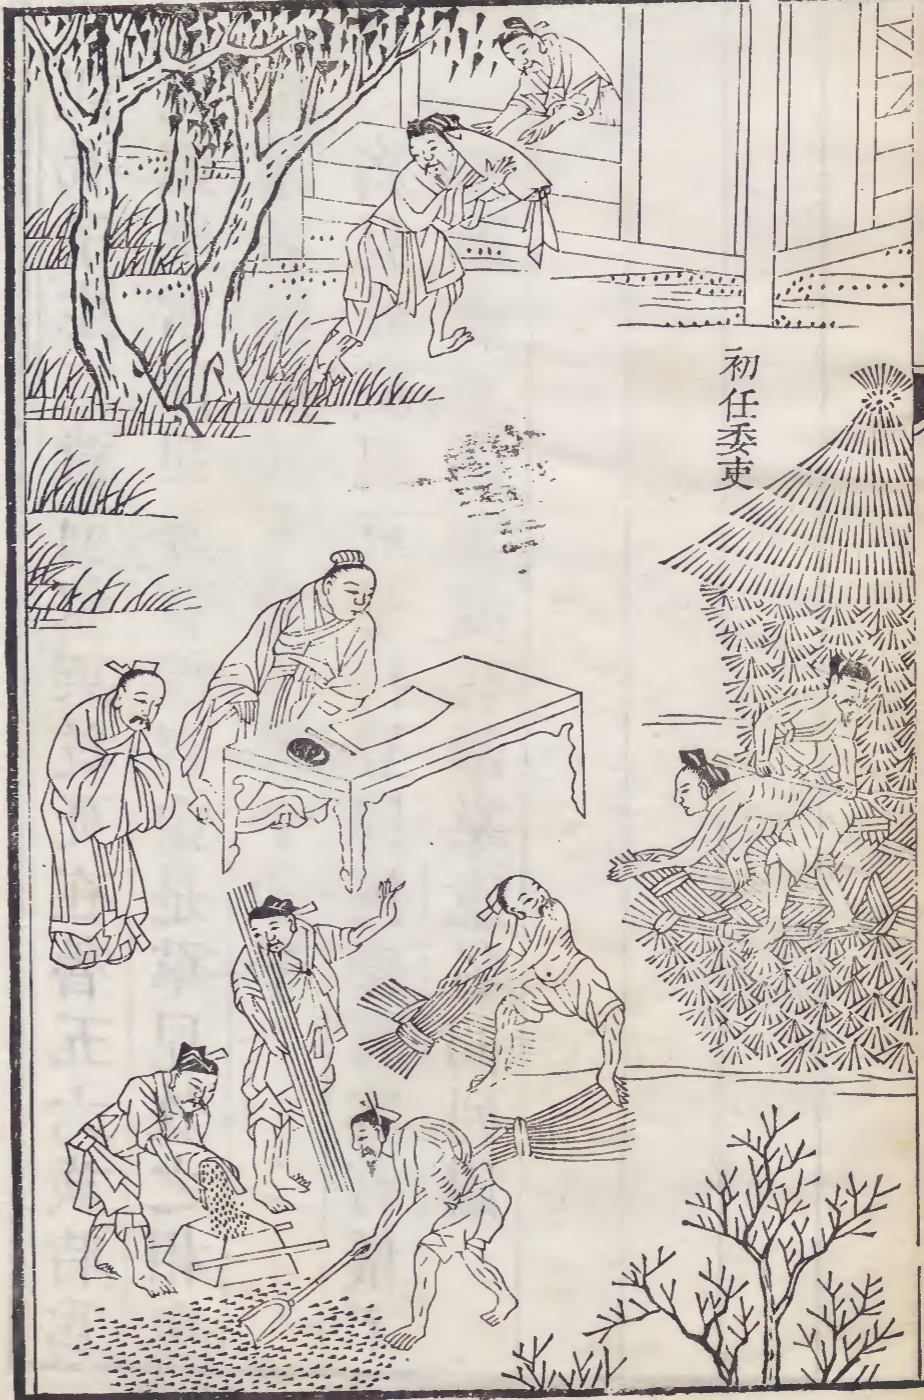 初任委吏